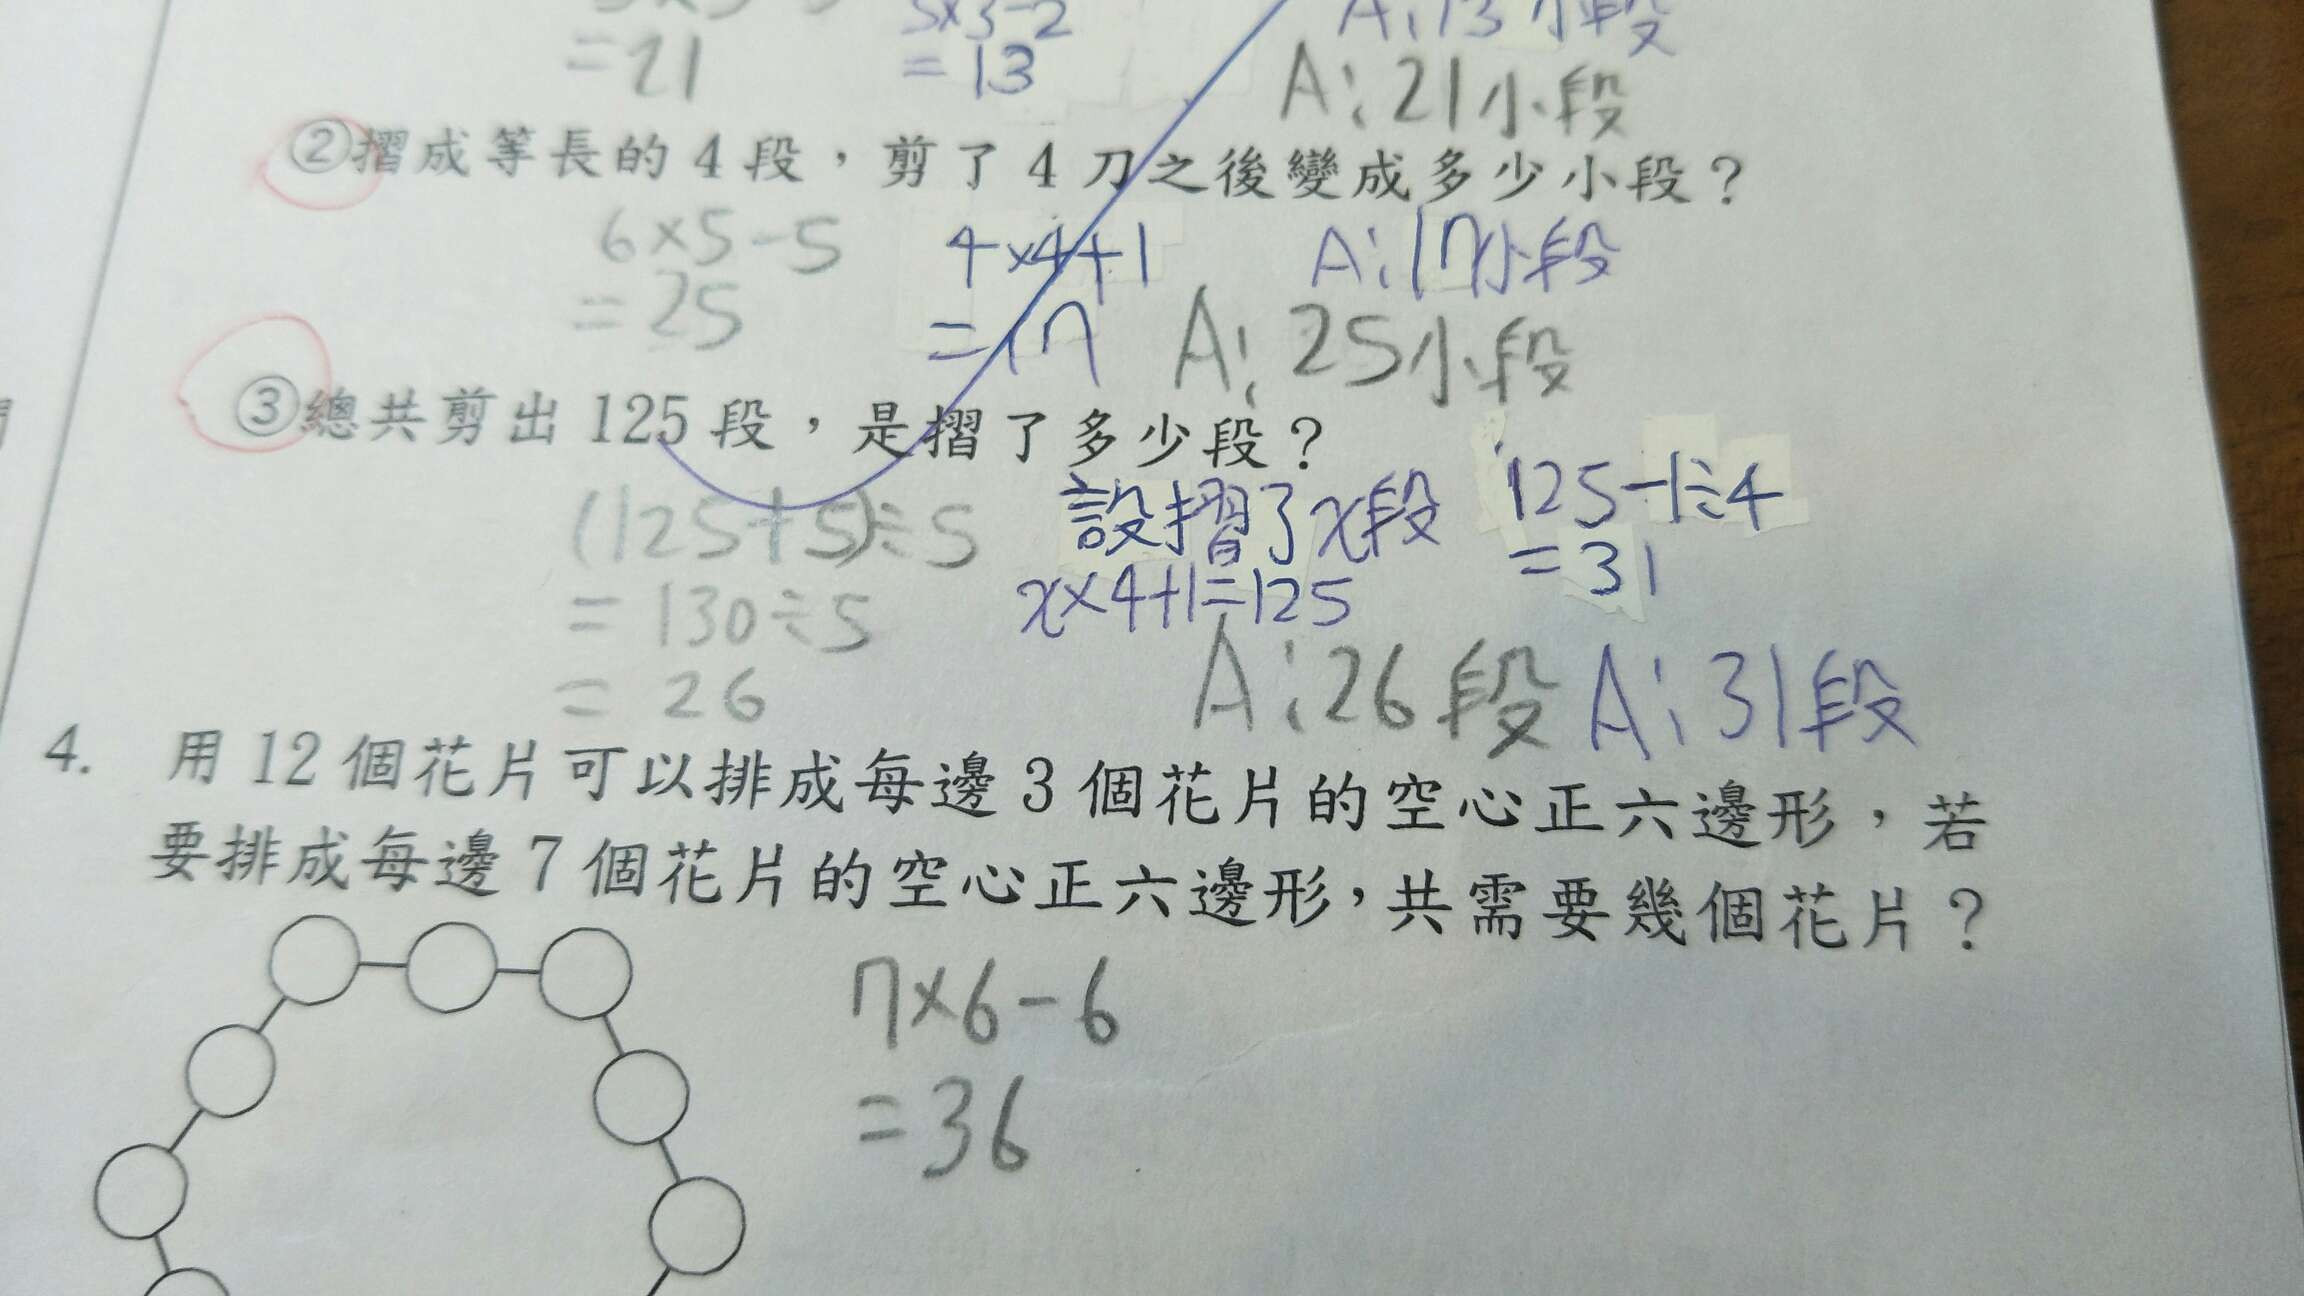 =21
5×3-2
=13
A:13小段
A:21小段
②摺成等長的4段，剪了4刀之後變成多少小段？
6×5-5
=25
4×4+1
=17
A:17小段
A:25小段
③總共剪出125段，是摺了多少段？
(125+5)÷5
=130÷5
=26
設摺了x段
x×4+1=125
125-1÷4
=31
A:26段
A:31段
4. 用12個花片可以排成每邊3個花片的空心正六邊形，若
要排成每邊7個花片的空心正六邊形，共需要幾個花片？
7×6-6
=36